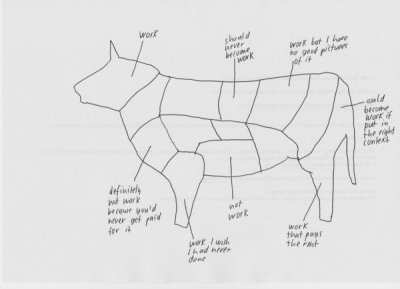 work
should
never
become
work
work but I have
no good pictures
of it
could
become
work if
put in
the right
context
definitely
not work
because you'd
never get paid
for it
work I wish
I had never
done
not
work
work
that pays
the rent